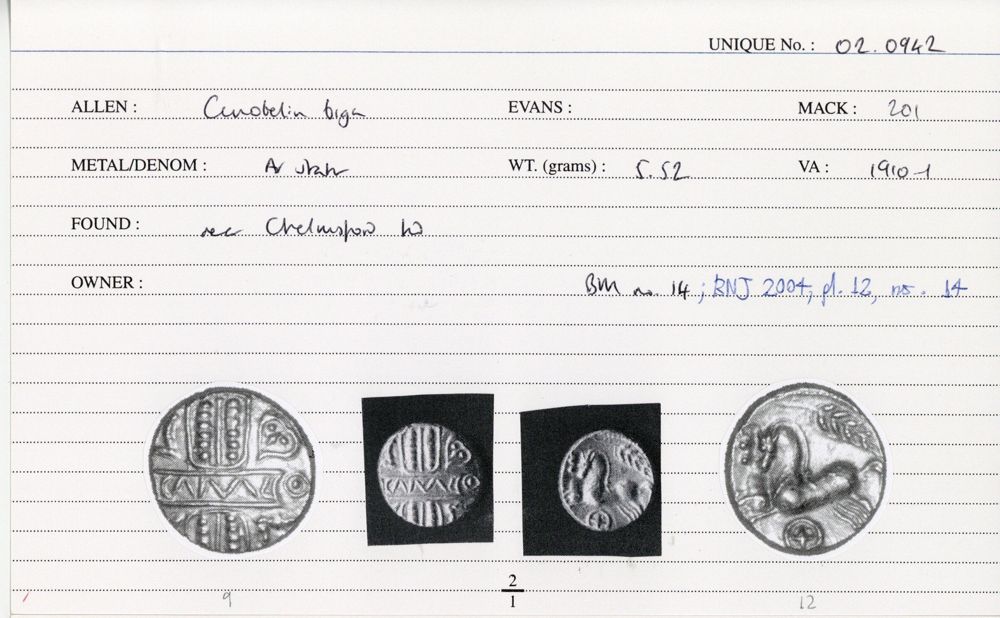 UNIQUE No. : 02.0942
ALLEN : Cunobelin biga EVANS : MACK : 201
METAL/DENOM : AV stater WT. (grams) : 5.52 VA : 1910-1
FOUND : near Chelmsford
OWNER : BM no. 14; BNJ 2004, pl. 12, no. 14
CAMVL
2
1
9 12